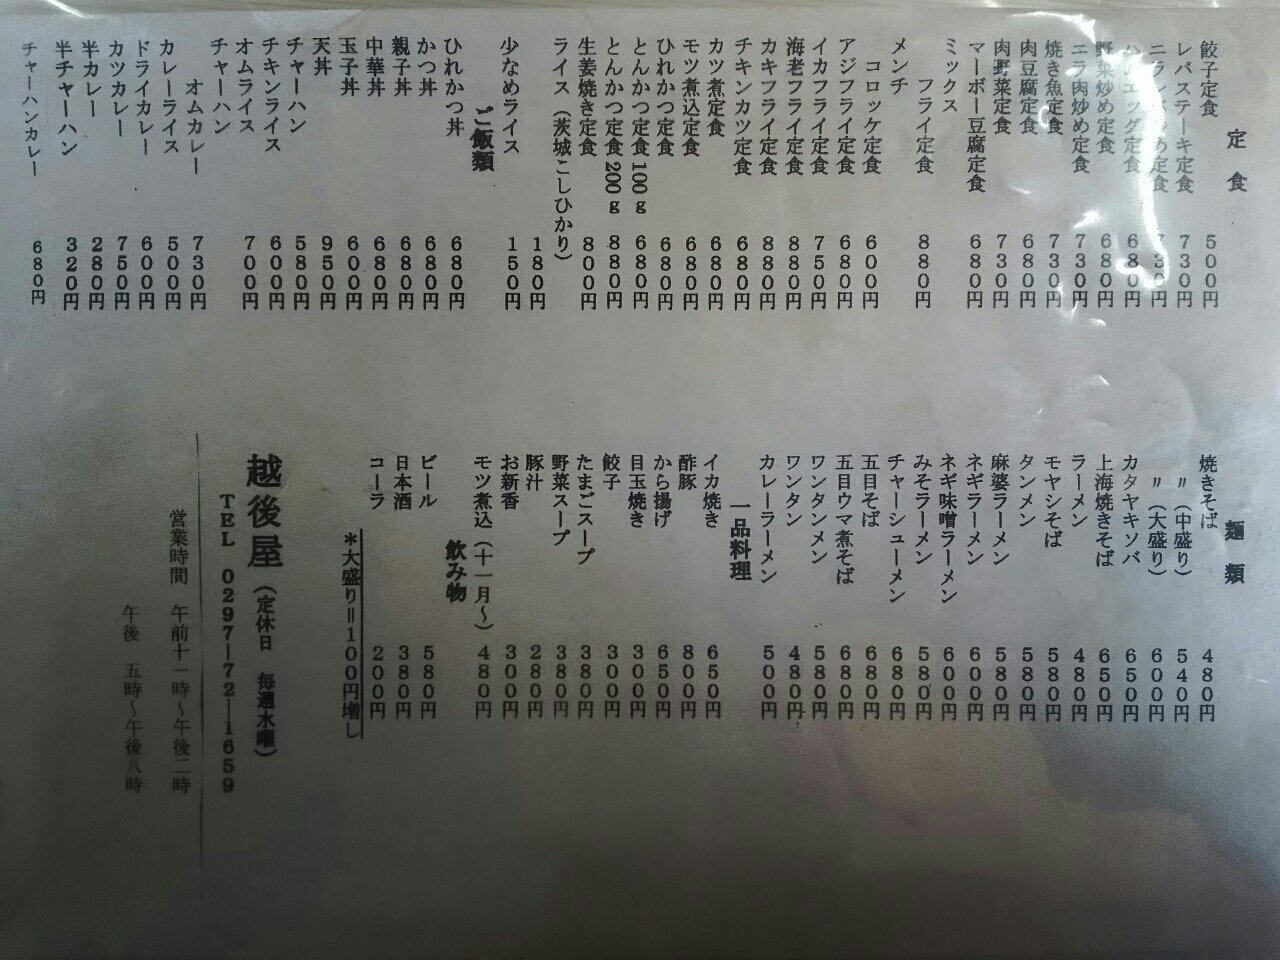 定食
餃子定食 500円
レバステーキ定食 730円
ニラレバ炒め定食 730円
ハムエッグ定食 680円
野菜炒め定食 680円
ニラ肉炒め定食 730円
焼き魚定食 730円
肉豆腐定食 680円
肉野菜定食 730円
マーボー豆腐定食 680円
ミックス
フライ定食 880円
メンチ
コロッケ定食 600円
アジフライ定食 680円
イカフライ定食 750円
海老フライ定食 880円
カキフライ定食 880円
チキンカツ定食 680円
カツ煮定食 680円
モツ煮込定食 680円
ひれかつ定食 680円
とんかつ定食 100g 680円
とんかつ定食 200g 880円
生姜焼き定食 800円
ライス(茨城こしひかり) 180円
少なめライス 150円
ご飯類
ひれかつ丼 680円
かつ丼 680円
親子丼 680円
中華丼 680円
玉子丼 600円
天丼 950円
チャーハン 580円
チキンライス 600円
オムライス 700円
チャーハン
オムカレー 730円
カレーライス 500円
ドライカレー 600円
カツカレー 750円
半カレー 280円
半チャーハン 320円
チャーハンカレー 680円
麺類
焼きそば 480円
〃(中盛り) 540円
〃(大盛り) 600円
カタヤキソバ 650円
上海焼きそば 650円
ラーメン 480円
モヤシそば 580円
タンメン 580円
麻婆ラーメン 580円
ネギラーメン 600円
ネギ味噌ラーメン 600円
みそラーメン 580円
チャーシューメン 680円
五目そば 680円
五目ウマ煮そば 680円
ワンタンメン 580円
ワンタン 480円
カレーラーメン 500円
一品料理
イカ焼き 650円
酢豚 800円
から揚げ 650円
目玉焼き 300円
餃子 300円
たまごスープ 380円
野菜スープ 380円
豚汁 280円
お新香 300円
モツ煮込(十一月〜) 480円
飲み物
ビール 580円
日本酒 380円
コーラ 200円
*大盛り=100円増し
越後屋(定休日 毎週水曜)
TEL 0297-72-1659
営業時間 午前十一時〜午後二時
午後 五時〜午後八時